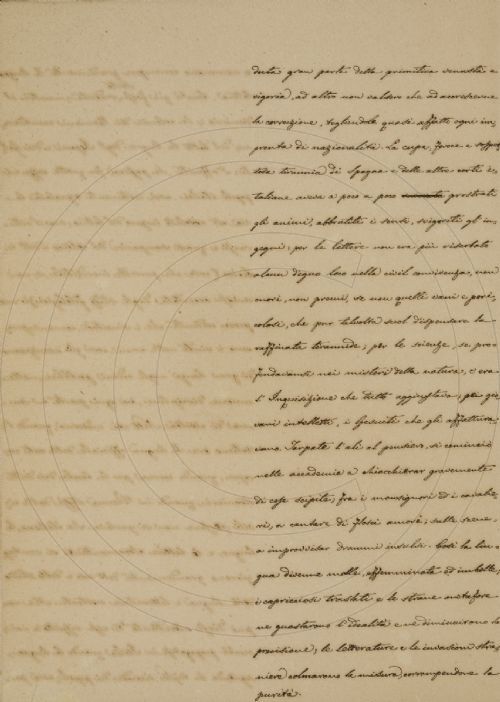 duta gran parte della primitiva venustà e
vigoria, ad altro non valsero che ad accrescerne
la corruzione, togliendole quasi affatto ogni im
pronta di nazionalità. La cupa, feroce e
tosa tirannia di Spagna e delle altre corti i,
taliane aveva a poco a poco prostrati
gli animi, abbrutiti i sensi, svigoriti gli in,
gegni; per le lettere non era più riserbato
alcun degno loco nella civil convivenza, non
onori, non premi, se non quelli vani e peri,
colosi, che pur talvolta suol dispensare la
raffinata tirannide; per le scienze, se pro
fondavansi nei misteri della natura, c'era
l'Inquisizione che tutto aggiustava; pei gio
vani intelletti, i Gesuiti che gli
vano. Tarpate l'ali al pensiero, si cominciò
nelle accademie a chiacchierar gravemente
di cose scipite, fra i monsignori ed i cavalie
ri, a cantare di flosci amori; sulle scene,
a improvvisar drammi insulsi. Così la lin
gua divenne molle, effemminata ed imbelle;
i capricciosi traslati e le strane metafore
ne guastarono l'idealità e ne diminuirono la
precisione; le letterature e le invasioni stra,
niere colmarono la misura, corrompendone la
purità.